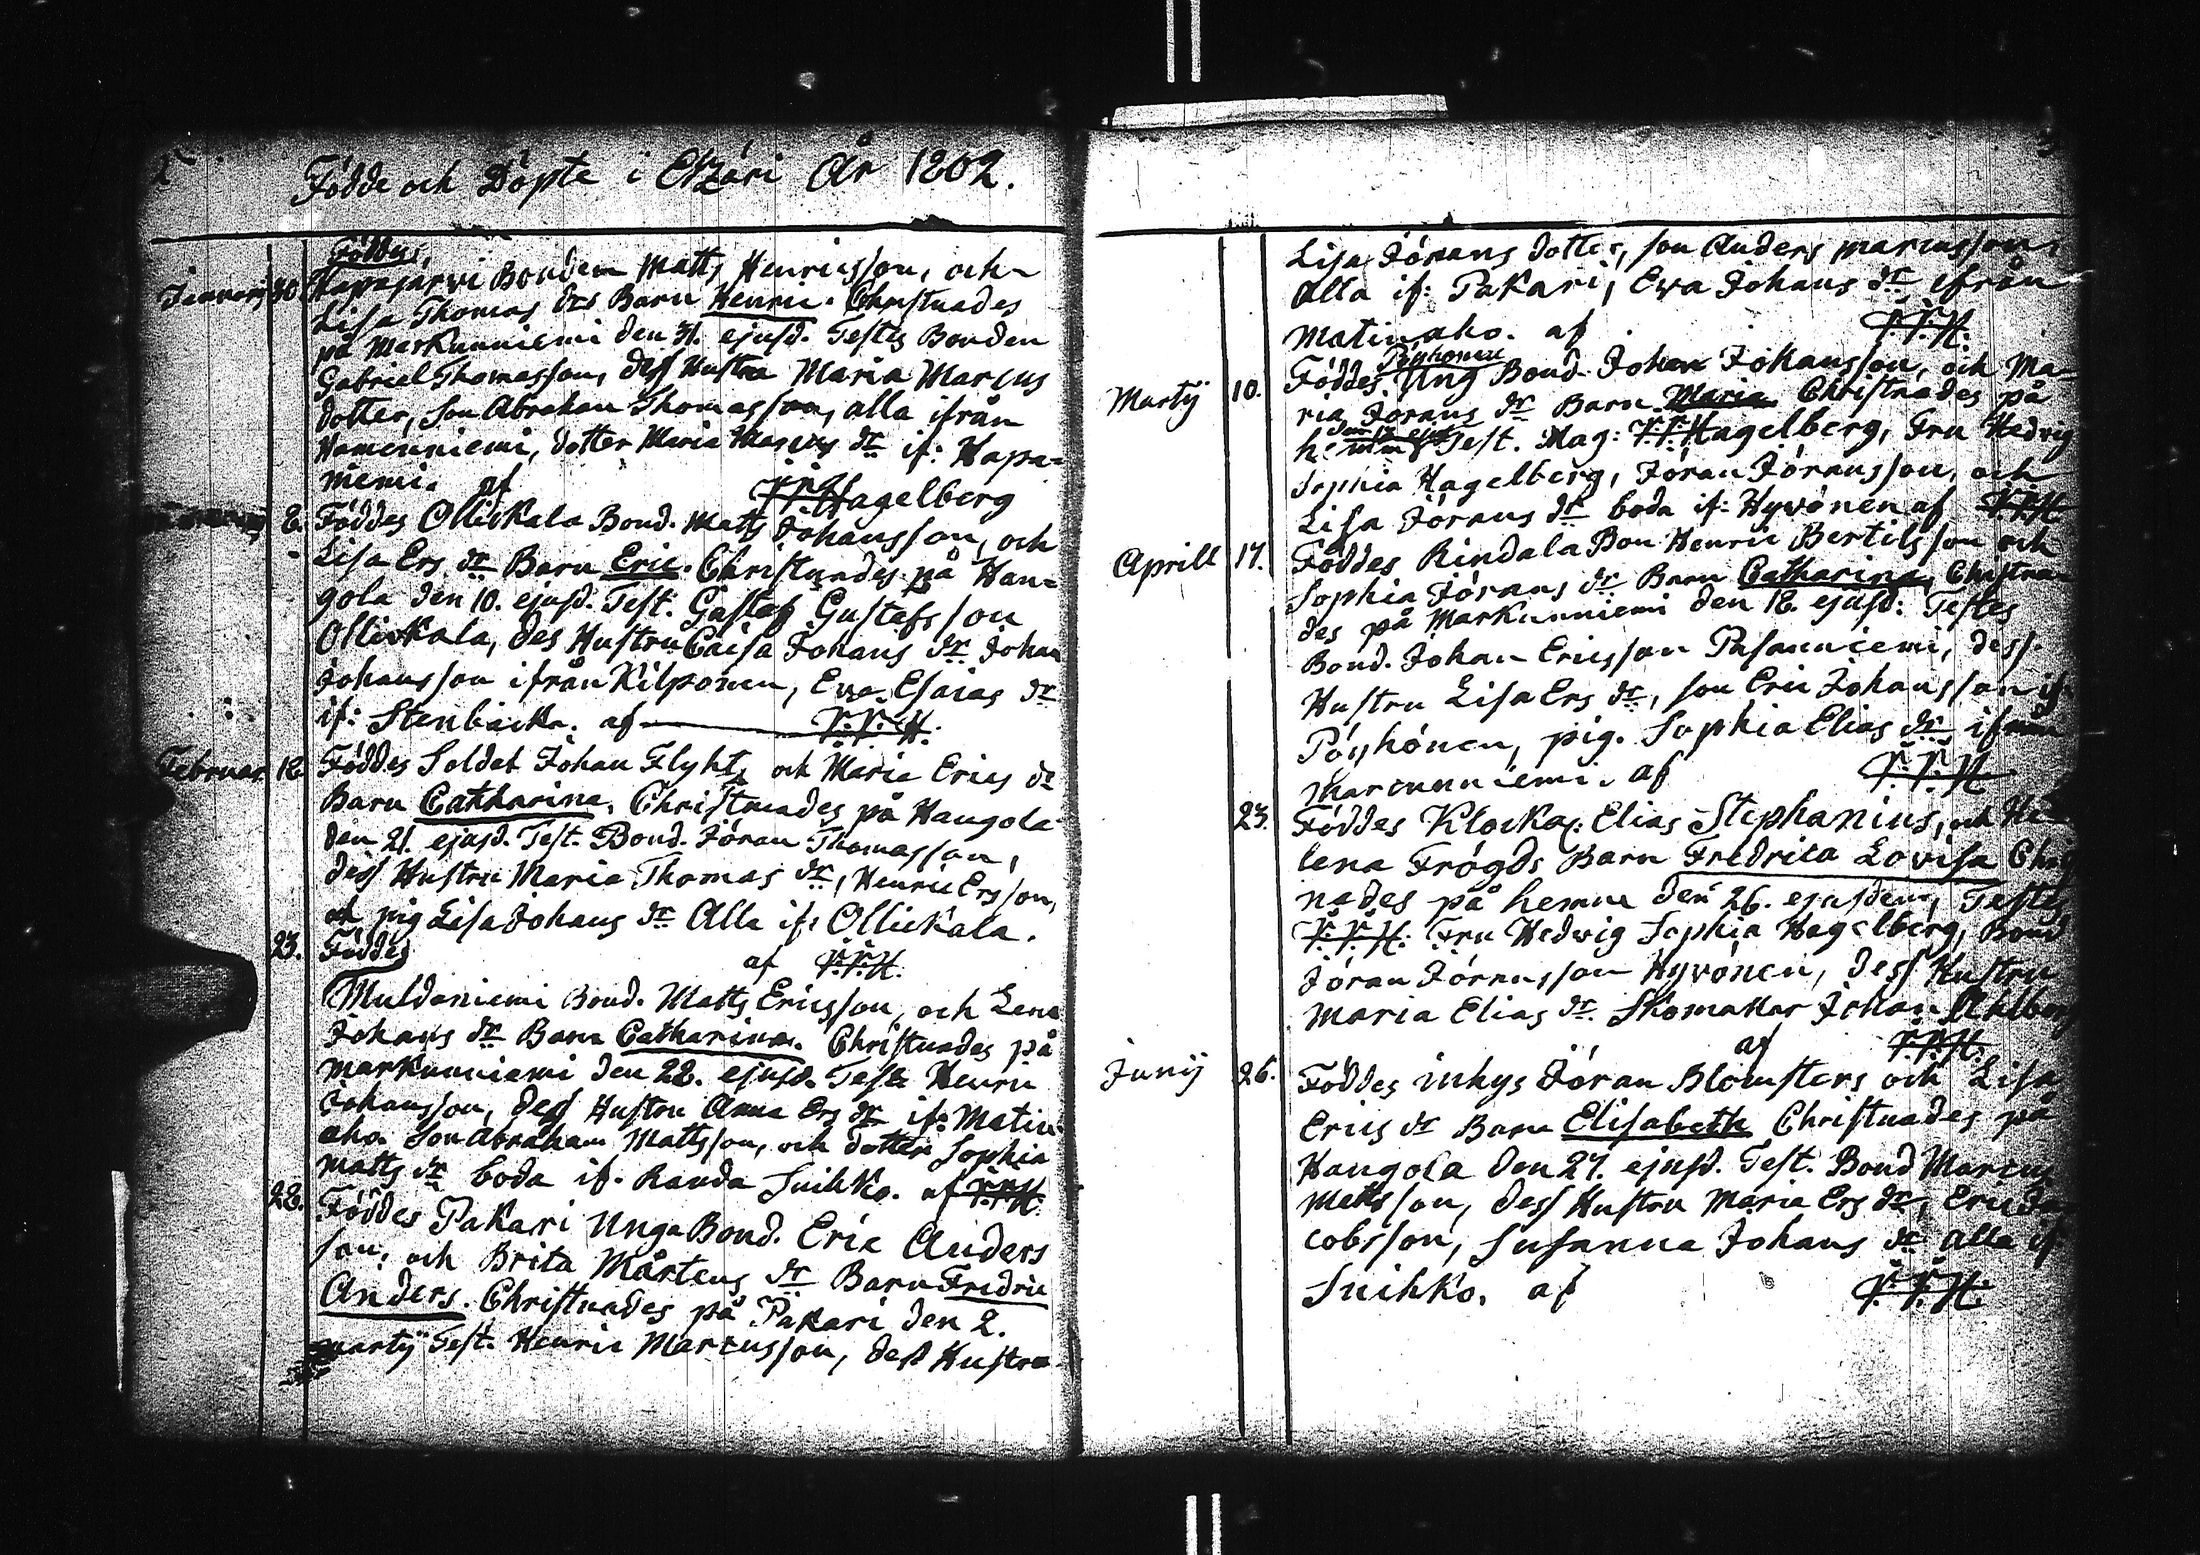 Födde och Döpte i Etzäri År 1802.
Föddes,
Januarij 30 Hapajarvi Bonden Matts Henricsson, och
Lisa Thomas drs Barn Henric. Christnades
på Markunniemi den 31. ejusd. Testes Bonden
Gabriel Thomasson, dess Hustru Maria Marcus
dotter, son Abraham Thomasson, alla ifrån
Hamenniemi, dotter Maria Marcus dr if: Hapa-
niemi. af Hagelberg
8. Föddes Ollickala Bond. Matts Johansson, och
Lisa Ers dr Barn Eric. Christnades på Han-
gola den 10. ejusd. Test. Gustaf Gustafsson
Ollickala, des Hustru Caisa Johans dr Johan
Johansson ifrån Kilponen, Eva Esaias dr
if: Stenbacka. af V.V.H.
Februar 18 Föddes Soldat Johan Flyht, och Maria Erics dr
Barn Catharina, Christnades på Hangola
den 21. ejusd. Test. Bond. Jöran Thomasson,
dess Hustru Maria Thomas dr, Henric Ersson,
och pig Lisa Johans dr Alla if: Ollickala.
23. Föddes af V.V.H.
Muldaniemi Bond. Matts Ericsson, och Lena
Johans dr Barn Catharina. Christnades på
Markunniemi den 28. ejusd. Test: Henric
Johansson, dess Hustru Anna Ers dr if: Matin-
aho. Son Abraham Mattsson, och dotter Sophia
Matts dr boda if. Randa Snihko. af V.V.H.
28. Föddes Pakari Unga Bond. Eric Anders
son, och Brita Mårtens dr Barn Fredric
Anders. Christnades på Pakari den 2.
martij Test. Henric Marcusson, dess Hustru
Lisa Jörans dotter, son Anders Marcusson,
Alla if: Pakari, Eva Johans dr ifrån
Matinaho. af V.V.H.
Pöyhönen
Martij 10. Föddes Ung Bond Johan Johansson, och Ma-
ria Jörans dr Barn Maria Christnades på
Test. Mag: V.V. Hagelberg, Fru Hedvig
Sophia Hagelberg, Jöran Jöransson, och
Lisa Jörans dr boda if: Hyvönen af V.V.H.
Aprill 17. Föddes Rindala Bon Henric Bertilsson och
Sophia Jörans dr Barn Catharina, Christna-
des på Markunniemi den 18. ejusd: Testes
Bond. Johan Ericsson Pasanniemi, dess
Hustru Lisa Ers dr, son Eric Johansson if:
Pöyhönen, pig. Sophia Elias dr, ifrån
Marcunniemi. af V.V.H.
23. Föddes Klocka: Elias Stephanius, och He-
lena Frögds Barn Fredrica Lovisa Christ
nades på hemme den 26. ejusdem, Testes
V.V.H. Fru Hedwig Sophia Hagelberg, Bond
Jöran Jöransson Hyvönen, dess Hustru
Maria Elias dr. Skomakar Johan Ahlberg
af V.V.H.
Junij 26. Föddes inhys Jöran Blomsters och Lisa
Erics dr Barn Elisabeth Christnades på
Hangola den 27. ejusd. Test. Bond Marcus
Mattsson, dess Hustru Maria Ers dr, Eric Ja
cobsson, Susanna Johans dr alla if
Snihko. af V.V.H.